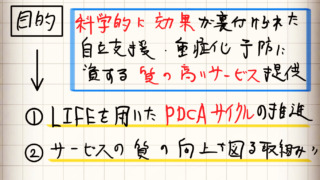 目的
科学的に効果が裏付けられた
自立支援・重症化予防に
資する質の高いサービス提供
① LIFEを用いたPDCAサイクルの推進
② サービスの質の向上を図る取組み